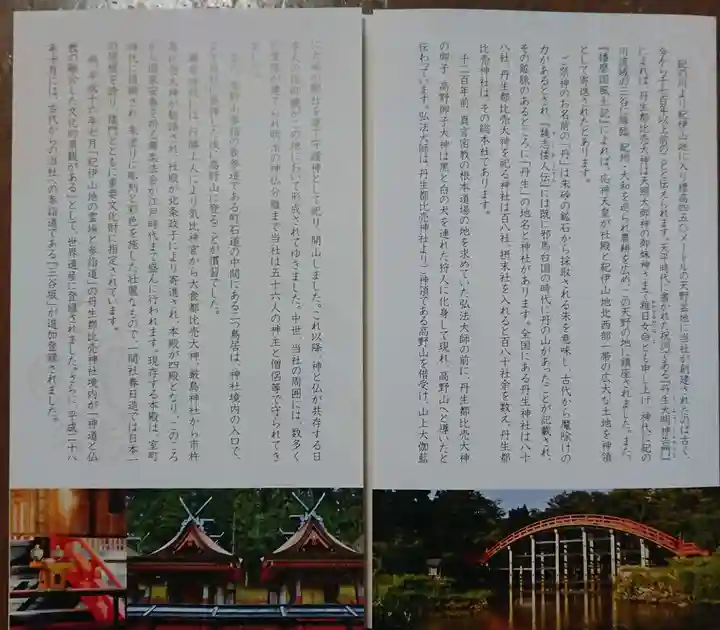 紀の川より紀伊山地に入り標高四五〇メートルの天野盆地に当社が創建されたのは古く、
今から千七百年以上前のことと伝えられます。天平時代に書かれた祝詞である『丹生大明神告門』
によれば、丹生都比売大神は天照大御神の御妹神さまで稚日女命とも申し上げ、神代に紀の
川流域の三谷に降臨、紀州・大和を巡られ農耕を広め、この天野の地に鎮座されました。また、
『播磨国風土記』によれば、応神天皇が社殿と紀伊山地北西部一帯の広大な土地を神領
として寄進されたとあります。
ご祭神のお名前の「丹」は朱砂の鉱石から採取される朱を意味し、古代から魔除けの
力があるとされ、『魏志倭人伝』には既に邪馬台国の時代に丹の山があったことが記載され、
その鉱脈のあるところに「丹生」の地名と神社があります。全国にある丹生神社は八十
八社、丹生都比売大神を祀る神社は百八社、摂末社を入れると百八十社余を数え、丹生都
比売神社は、その総本社であります。
千二百年前、真言密教の根本道場の地を求めていた弘法大師の前に、丹生都比売大神
の御子、高野御子大神は黒と白の犬を連れた狩人に化身して現れ、高野山へと導いたと
伝わっています。弘法大師は、丹生都比売神社よりご神領である高野山を借受け、山上大伽藍
に大神の御社を建て守護神として祀り、開山しました。これ以降、神と仏が共存する日
本人の宗教観がこの地において形成されてゆきました。中世、当社の周囲には、数多く
の
が建てられ明治の神仏分離まで当社は五十六人の神主と僧侶等で守られてき
ました。
また、高野山参詣の表参道である町石道の中間にある二つ鳥居は、神社境内の入口で、
まず当社に参拝した後に高野山に登ることが慣習でした。
鎌倉時代には、行勝上人により気比神宮から大食都比売大神、厳島神社から市杵
島比売大神が勧請され、社殿が北条政子により寄進され、本殿が四殿となり、このころ
から
舞楽法会が江戸時代まで盛んに行われます。現存する本殿は、室町
時代に復興され、朱塗りに彫刻と彩色を施した壮麗なもので、一間社春日造では日本一
の規模を誇り、楼門とともに重要文化財に指定されています。
尚、平成十六年七月「紀伊山地の霊場と参詣道」の丹生都比売神社境内が「神道と仏
教の融合した文化的景観がある」として、世界遺産に登録されました。さらに、平成二十八
年十月には、古代からの当社への参詣道である「三谷坂」が追加登録されました。